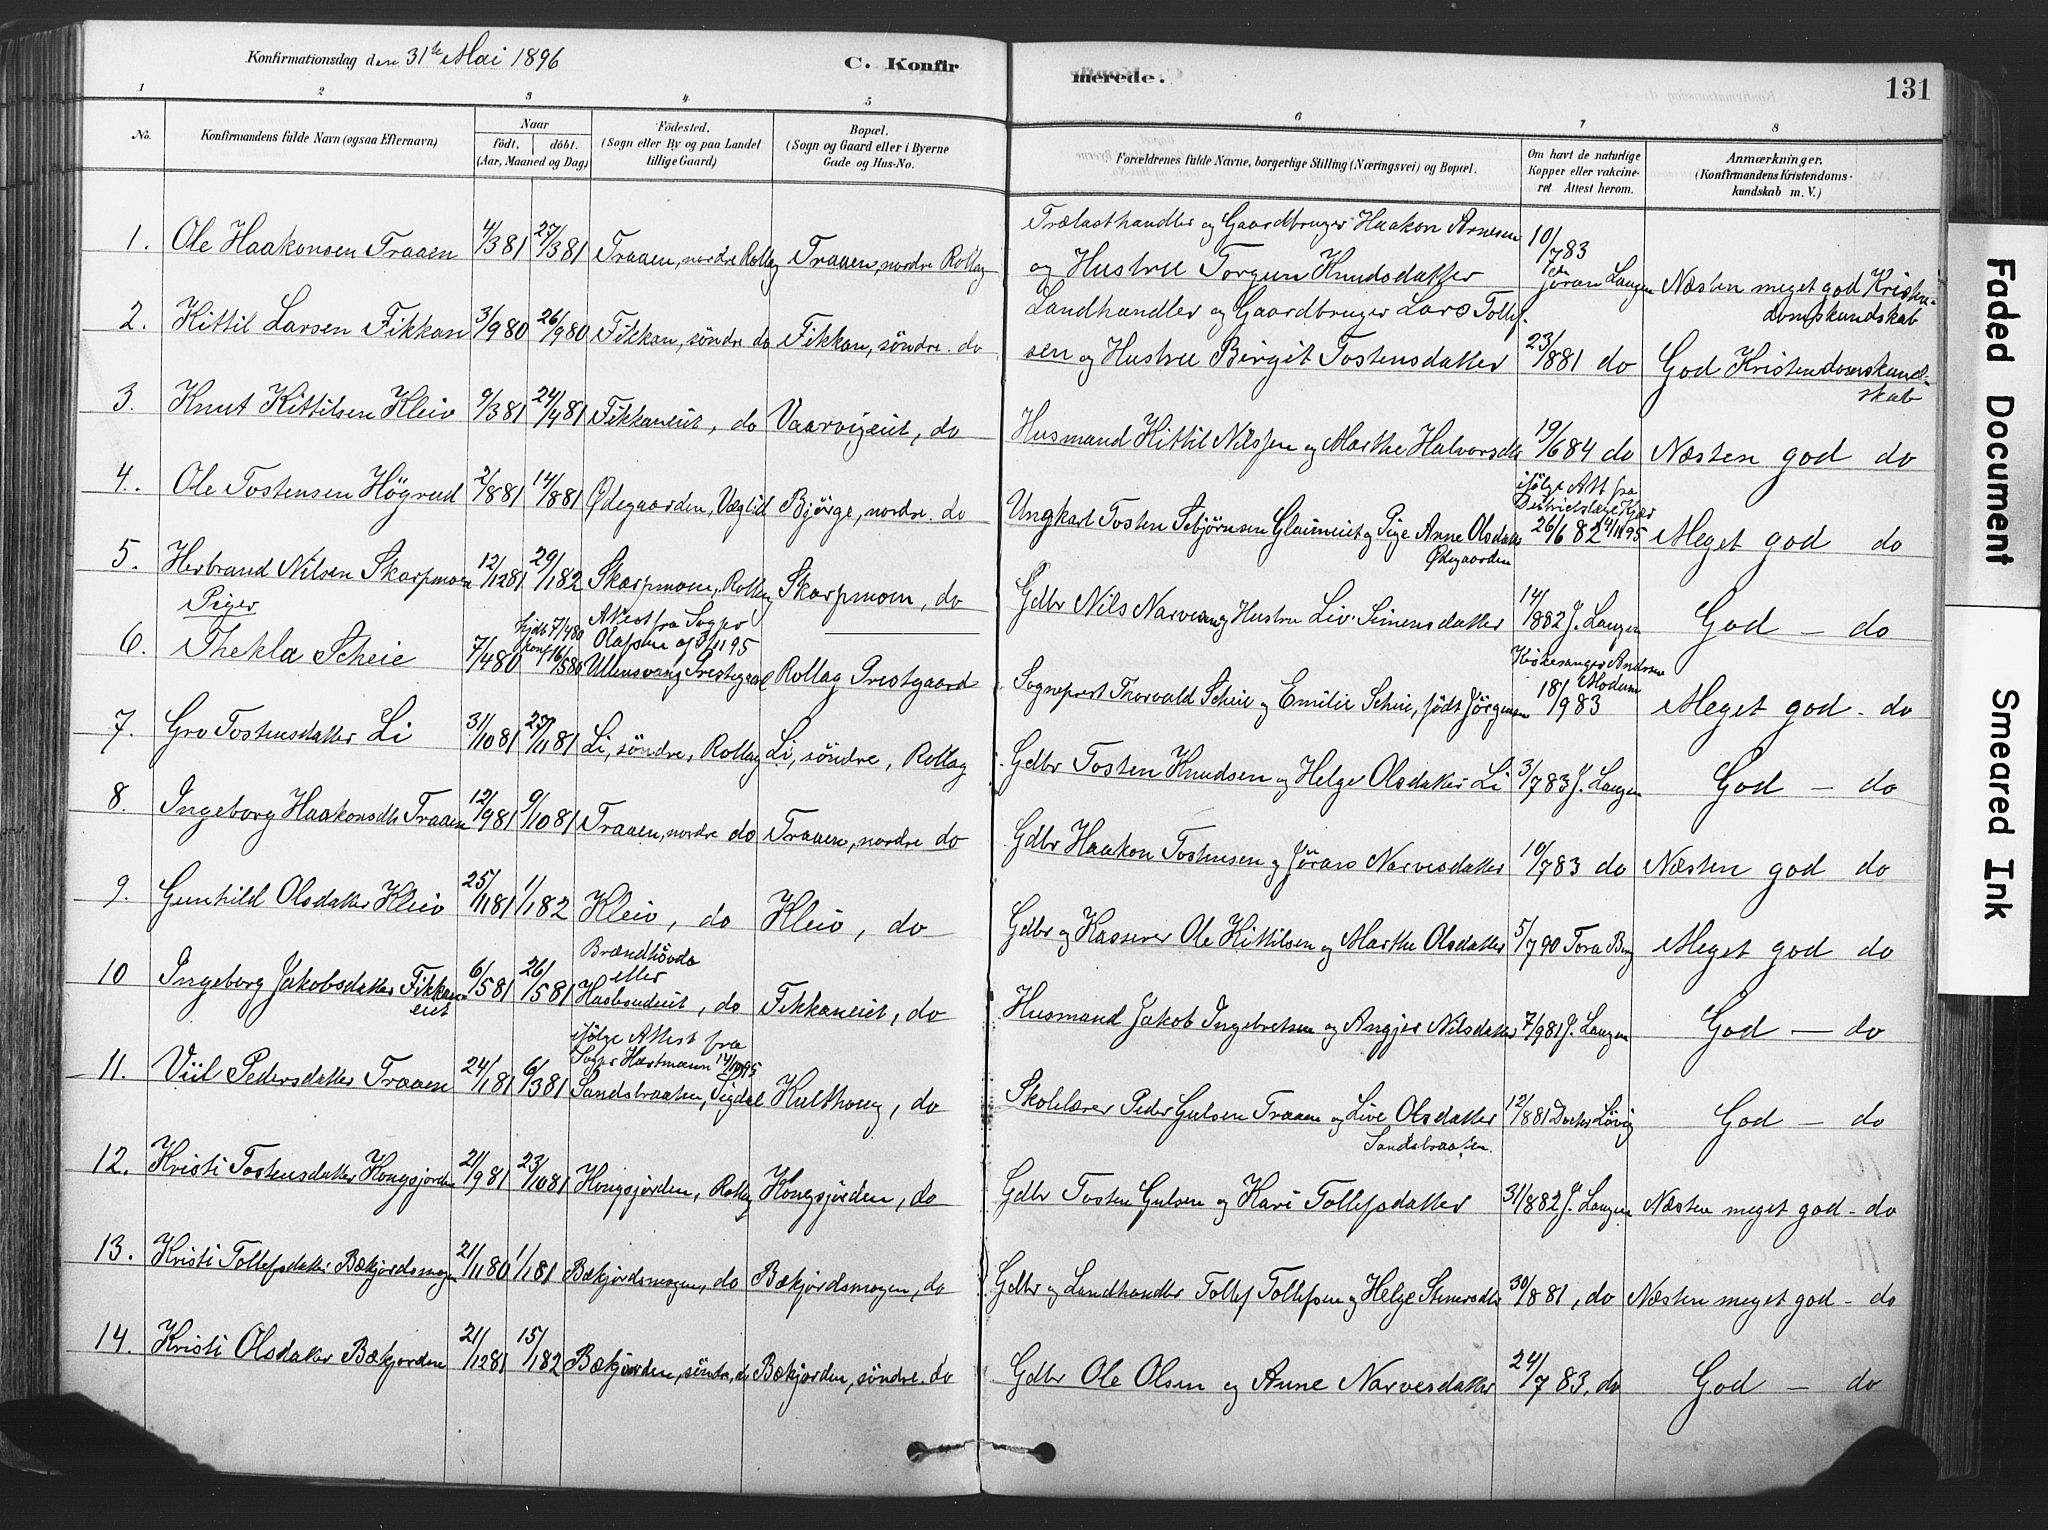 Konfirmationsdag den 31te Mai 1896
C. Konfirmerede.
131
1 2 3 4 5 6 7 8
No.
Konfirmandens fulde Navn (ogsaa Efternavn)
Naar
födt. döbt.
(Aar, Maaned og Dag)
Födested.
(Sogn eller By og paa Landet
tillige Gaard)
Bopæl.
(Sogn og Gaard eller i Byerne
Gade og Hus-No.
Forældrenes fulde Navne, borgerlige Stilling (Næringsvei) og Bopæl.
Om havt de naturlige
Kopper eller vakcine-
ret Attest herom.
Anmærkninger.
(Konfirmandens Kristendoms-
kundskab m. V.)
1. Ole Haakonsen Traaen 4/3 81 27/3 81 Traaen, nordre Rollag Traaen, nordre Rollag Trælasthandler og Gaardbruger Haakon Arnesen
og Hustru Torgun Knudsdatter 10/7 83 Jöran Langen Næsten meget god Kristen-
domskundskab
2. Kittil Larsen Fikkan 3/9 80 26/9 80 Fikkan, söndre do Fikkan, söndre do Landhandler og Gaardbruger Lars Tollef-
sen og Hustru Birgit Tostensdatter 23/8 81 do God Kristendomskund-
skab
3. Knut Kittilsen Kleiv 9/3 81 24/4 81 Fikkaneiet, do Vaarvigeiet, do Husmand Kittil Nilssen og Marthe Halvorsdtr 19/6 84 do Næsten god do
4. Ole Tostensen Högrud 2/8 81 14/8 81 Ødegaarden, Væglid Björge, nordre. do Ungkarl Tosten Sebjörnsen Glaimeiet og Pige Anne Olsdatter
Ødegaarden
ifølge Att fra
Distriktslæge Kjær
26/6 82 4/11 95 Meget god do
5. Herbrand Nilsen Skarpmoen 12/12 81 29/1 82 Skarpmoen, Rollag Skarpmoen, do Gdbr Nils Narvesen og Hustru Liv Simensdatter 14/8 82 J. Langen God – do
Piger
Attest fra Sogpr
Olafsen af 5/11 95
6. Thekla Scheie 7/4 80 hjdb 7/4 80 16/5 80 Ullensvang Prestegaard Rollag Prestgaard Sogneprest Thorvald Scheie og Emilie Scheie, født Jörgensen Kirkesanger Andersen
Modum
18/9 83 Meget god – do
7. Gro Tostensdatter Li 31/10 81 27/11 81 Li, söndre, Rollag Li, söndre, Rollag Gdbr Tosten Knudsen og Helge Olsdatter Li 3/7 83 J. Langen God – do
8. Ingeborg Haakonsdtr Traaen 12/9 81 9/10 81 Traaen, nordre do Traaen, nordre do Gdbr Haakon Tostensen og Jöran Narvesdatter 10/7 83 do Næsten god do
9. Gunhild Olsdatter Kleiv 25/11 81 1/1 82 Kleiv, do Kleiv, do Gdbr og Kasserer Ole Kittilsen og Marthe Olsdatter 5/7 90 Tora Berg Meget god do
Brændhövda
eller
10 Ingeborg Jakobsdatter Fikkan-
eiet 6/5 81 26/5 81 do Fikkaneiet, do Husmand Jakob Ingebretsen og Angjer Nilsdatter 7/9 81 J. Langen God – do
ifölge Attest fra
Sogpr Hartmann 14/10 95
11. Viil Pedersdatter Traaen 24/1 81 6/3 81 Sandsbraaten, Sigdal Hulthoug, do Skolelærer Peder Gulsen Traaen og Live Olsdatter
Sandsbraaten. 12/8 81 Doctor Lövig God – do
12. Kristi Tostensdatter Kongsjorden 21/9 81 23/10 81 Kongsjorden, Rollag Kongsjorden, do Gdbr Tosten Gulsen og Kari Tollefsdatter 31/8 82 J. Langen Næsten meget god – do
13. Kristi Tollefsdatter Bækjordsmogen 21/11 80 1/1 81 Bækjordsmogen, do Bækjordsmogen, do Gdbr og Landhandler Tollef Tollefsen og Helge Steinersdtr 30/8 81, do Næsten meget god – do
14. Kristi Olsdatter Bækjorden 21/12 81 15/1 82 Bækjorden, söndre, do Bækjorden, söndre. do Gdbr Ole Olsen og Anne Narvesdatter 24/7 83, do God – do
Faded Document
Smeared Ink